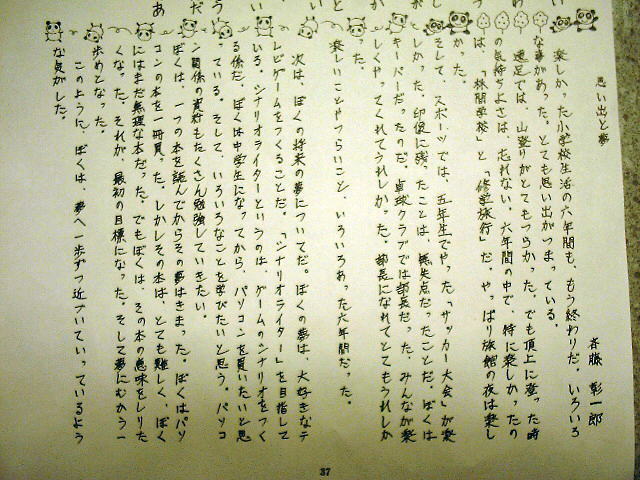 思い出と夢
斉藤 彰一郎
楽しかった小学校生活の六年間も、もう終わりだ。いろいろ
な事があった。とても思い出がつまっている。
遠足では、山登りがとてもつらかった。でも頂上に登った時
の気持ちよさは、忘れない。六年間の中で、特に楽しかったの
は、「林間学校」と「修学旅行」だ。やっぱり旅館の夜は楽し
かった。
そして、スポーツでは、五年生でやった「サッカー大会」が楽
しかった。印促に残ったことは、無失点だったことだ。ぼくは
キーパーだったのだ。卓球クラブでは部長だった。みんなが楽
しくやってくれてうれしかった。部長になれてとてもうれしか
った。
楽しいことやつらいこと、いろいろあった六年間だった。
次は、ぼくの将来の夢についてだ。ぼくの夢は、大好きなテ
レビゲームをつくることだ。「シナリオライター」を目指して
いる。シナリオライターというのは、ゲームのシナリオをつく
る係だ。ぼくは中学生になってから、パソコンを買いたいと思
っている。そして、いろいろなことを学びたいと思う。パソコ
ン関係の資料もたくさん勉強していきたい。
ぼくは、一つの本を読んでからその夢はきまった。ぼくはパソ
コンの本を一冊買った。しかしその本は、とても難しく、ぼく
にはまだ無理な本だった。でもぼくは、その本の意味をしりた
くなった。それが、最初の目標になった。そして夢にむかう一
歩めとなった。
このように、ぼくは、夢へ一歩ずつ近づいていっているよう
な気がした。
37